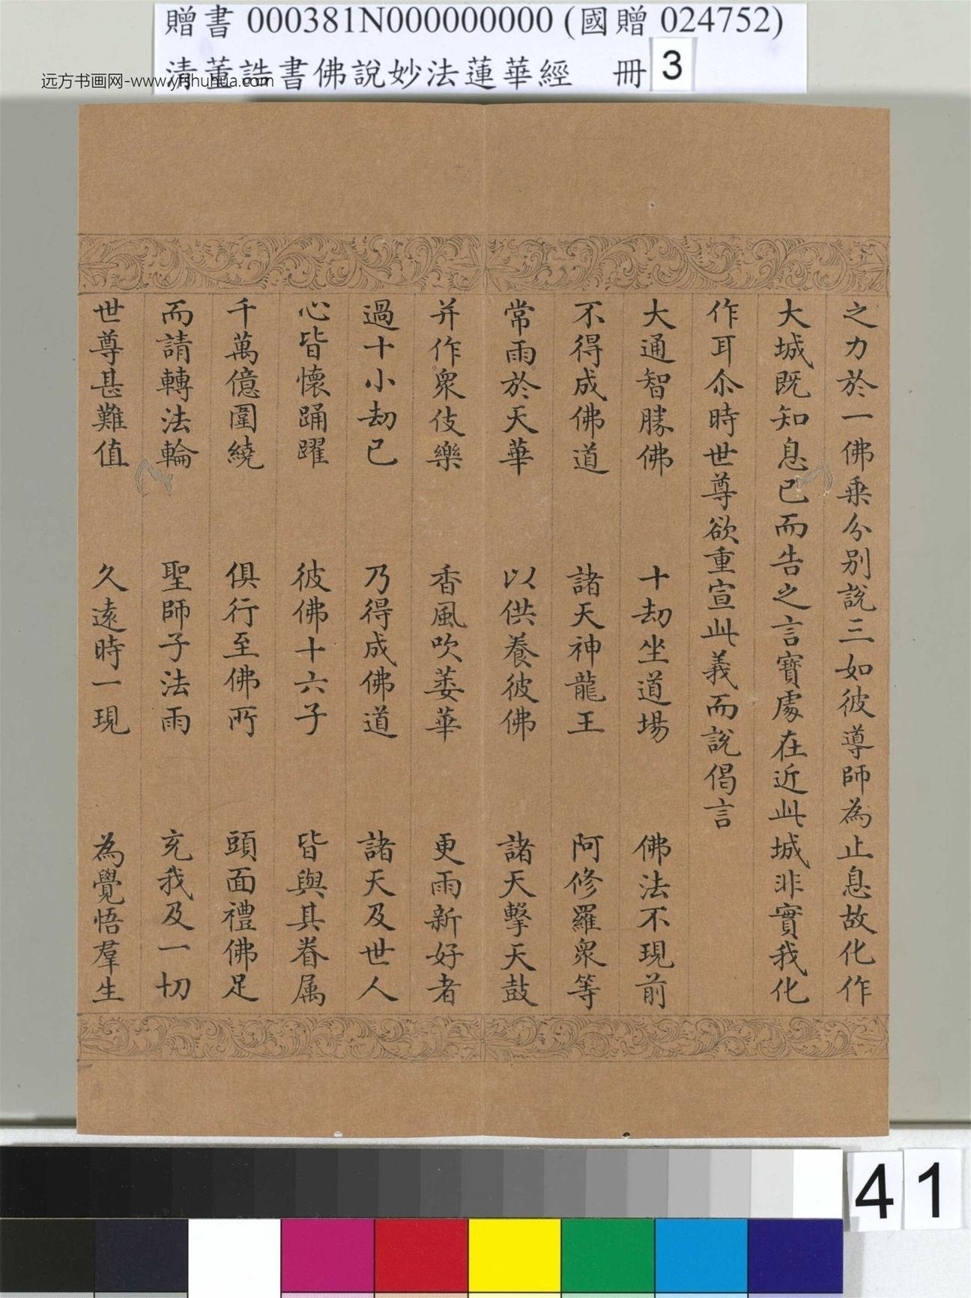 贈書 000381N000000000 (國贈 024752)
清董誥書佛說妙法蓮華經 冊 3
远方书画网-www.yfshuhua.com
之力於一佛乗分別說三如彼導師為止息故化作
大城既知息已而告之言寶處在近此城非實我化
作耳尒時世尊欲重宣此義而說偈言
大通智勝佛 十劫坐道場 佛法不現前
不得成佛道 諸天神龍王 阿修羅衆等
常雨於天華 以供養彼佛 諸天擊天鼓
并作衆伎樂 香風吹萎華 更雨新好者
過十小劫已 乃得成佛道 諸天及世人
心皆懷踊躍 彼佛十六子 皆與其眷属
千萬億圍繞 俱行至佛所 頭面禮佛足
而請轉法輪 聖師子法雨 充我及一切
世尊甚難值 久遠時一現 為覺悟羣生
41